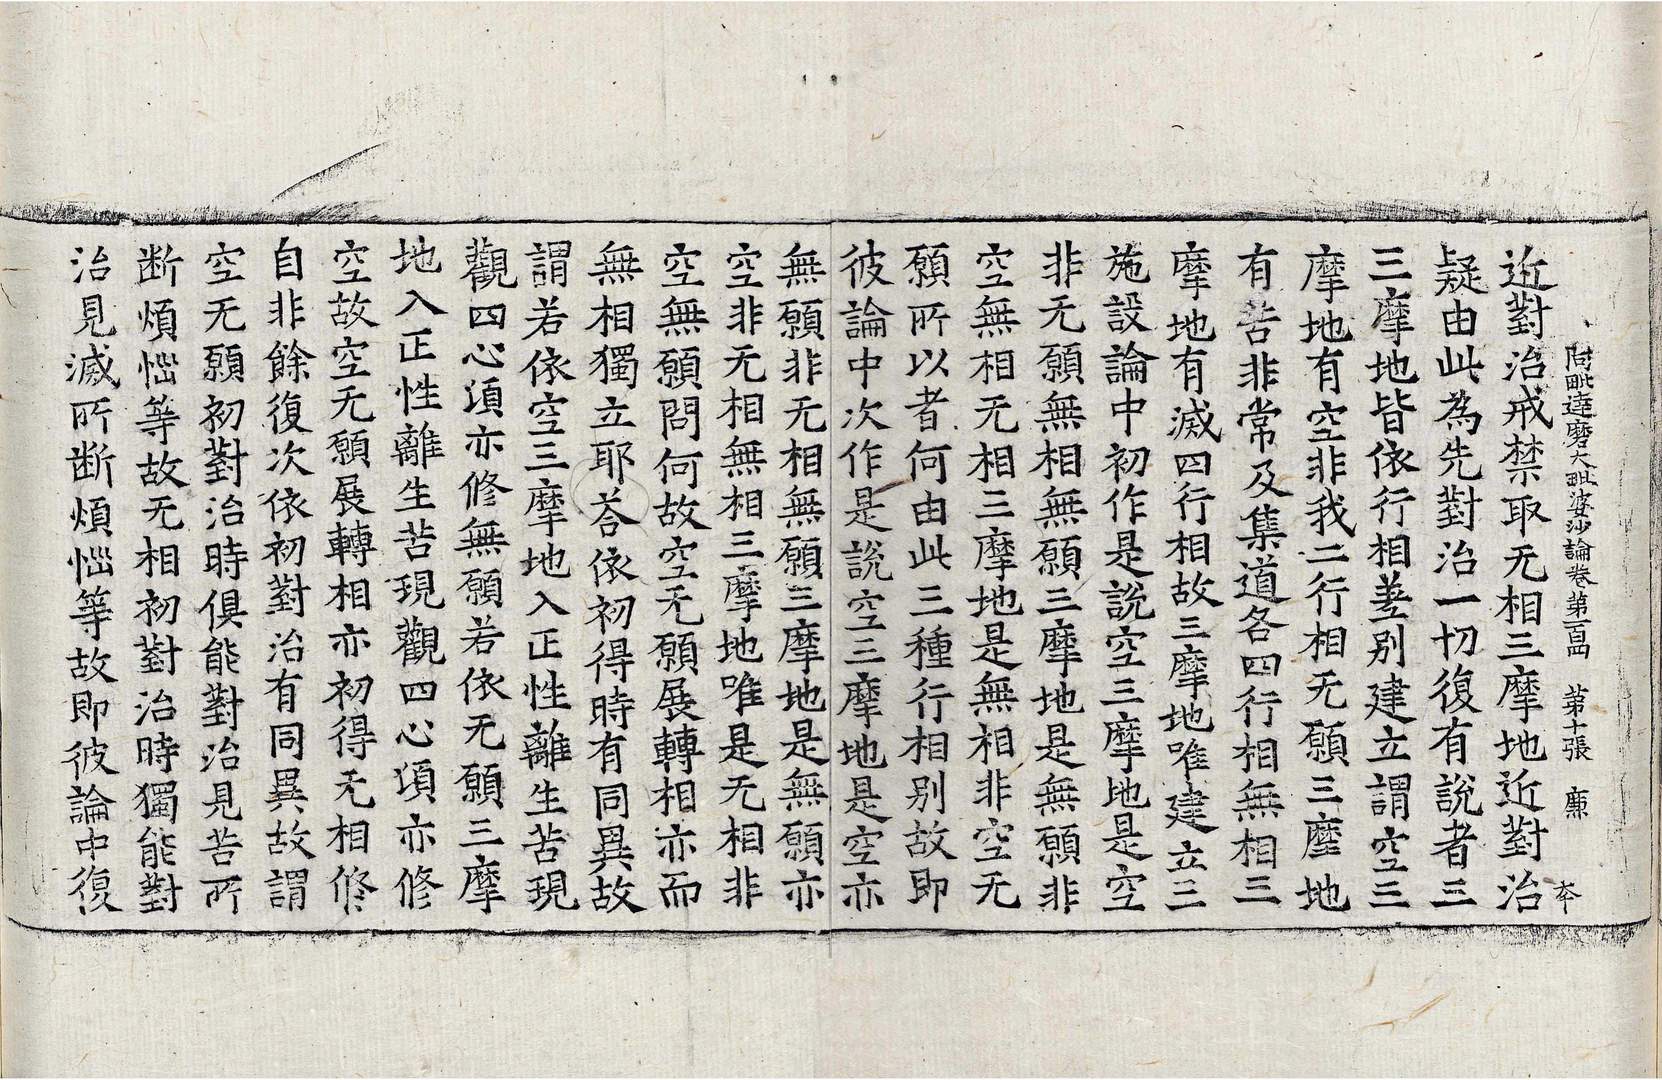 阿毗達磨大毗婆沙論卷第一百四 第十張 廉
近對治戒禁取无相三摩地近對治
疑由此為先對治一切復有說者三
三摩地皆依行相差別建立謂空三
摩地有空非我二行相无願三摩地
有苦非常及集道各四行相無相三
摩地有滅四行相故三摩地唯建立三
施設論中初作是說空三摩地是空
非无願無相無願三摩地是無願非
空無相无相三摩地是無相非空无
願所以者何由此三種行相別故即
彼論中次作是說空三摩地是空亦
無願非无相無願三摩地是無願亦
空非无相無相三摩地唯是无相非
空無願問何故空无願展轉相亦而
無相獨立耶荅依初得時有同異故
謂若依空三摩地入正性離生苦現
觀四心須亦修無願若依无願三摩
地入正性離生苦現觀四心須亦修
空故空无願展轉相亦初得无相修
自非餘復次依初對治有同異故謂
空无願初對治時俱能對治見苦所
断煩惱等故无相初對治時獨能對
治見滅所断煩惱等故即彼論中復